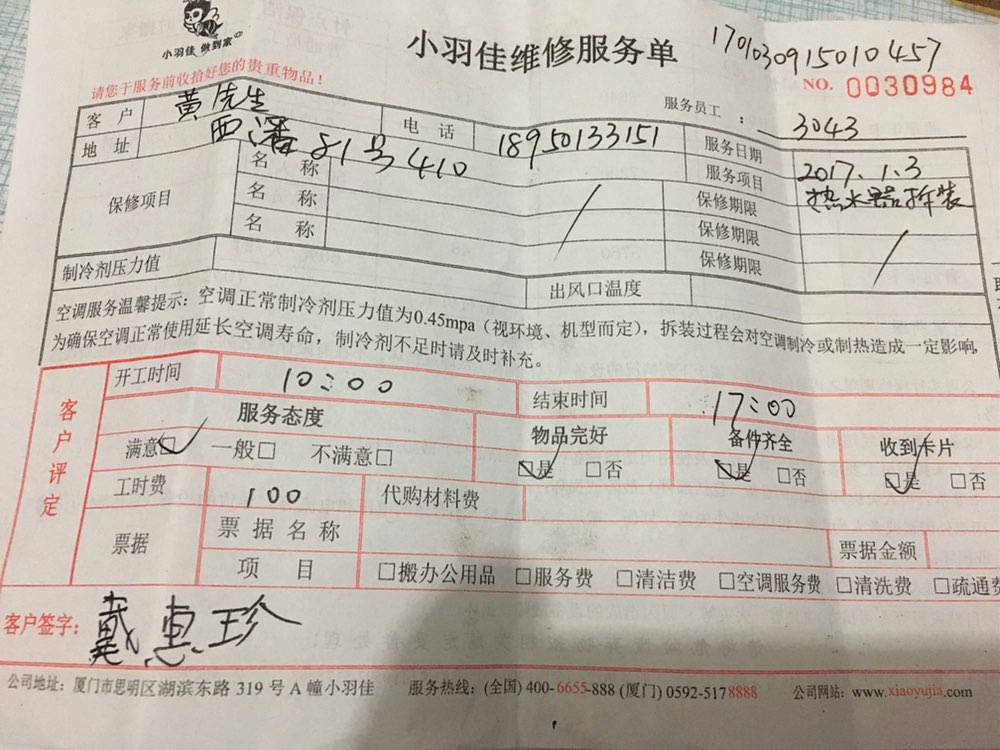 小羽佳 做到家
小羽佳维修服务单
1701030915010457
请您于服务前收拾好您的贵重物品！
NO. 0030984
服务员工 : 3043
客户 黄先生 电话 18950133151 服务日期 2017.1.3
地址 西潘81号410 服务项目 热水器拆装
保修项目 名称 保修期限
名称 / 保修期限 /
名称 保修期限
制冷剂压力值 出风口温度
空调服务温馨提示：空调正常制冷剂压力值为0.45mpa（视环境、机型而定），拆装过程会对空调制冷或制热造成一定影响,
为确保空调正常使用延长空调寿命，制冷剂不足时请及时补充。
客户评定
开工时间 10:00 结束时间 17:00
服务态度 物品完好 备件齐全 收到卡片
满意☑ 一般□ 不满意□ ☑是 □否 ☑是 □否 ☑是 □否
工时费 100 代购材料费
票据 票据名称 票据金额
项目 □搬办公用品 □服务费 □清洁费 □空调服务费 □清洗费 □疏通费
客户签字: 戴惠珍
公司地址: 厦门市思明区湖滨东路 319 号 A 幢小羽佳 服务热线: (全国) 400-6655-888 (厦门) 0592-5178888 公司网站: www.xiaoyujia.com